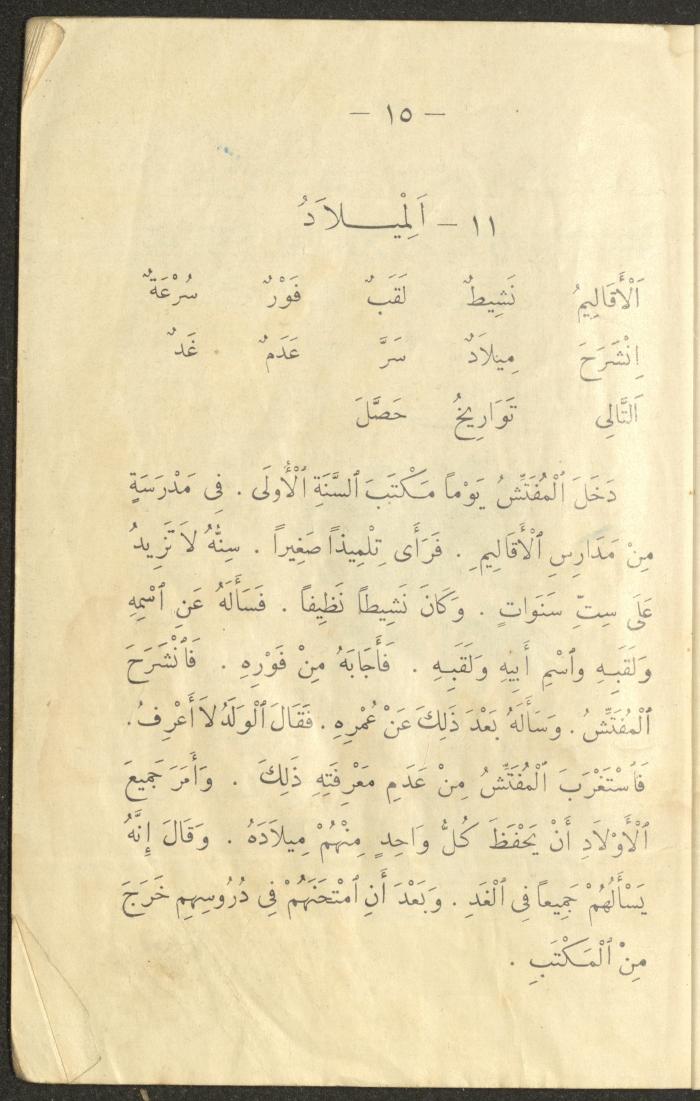 — ١٥ —
١١ — اَلْمِيـــلاَدُ
اَلْأَقَالِيمُ نَشِيطٌ لَقَبٌ فَوْرٌ سُرْعَةٌ
اِنْشَرَحَ مِيلاَدٌ سَرَّ عَدَمٌ غَدٌ
اَلتَّالِى تَوَارِيخُ حَصَّلَ
دَخَلَ ٱلْمُفَتِّشُ يَوْماً مَكْتَبَ ٱلسَّنَةِ ٱلْأُولَى . فِى مَدْرَسَةٍ
مِنْ مَدَارِسِ ٱلْأَقَالِيمِ . فَرَأَى تِلْمِيذاً صَغِيراً . سِنُّهُ لاَ تَزِيدُ
عَلَى سِتِّ سَنَوَاتٍ . وَكَانَ نَشِيطاً نَظِيفاً . فَسَأَلَهُ عَنِ ٱسْمِهِ
وَلَقَبِهِ وٱسْمِ أَبِيهِ وَلَقَبِهِ . فَأَجَابَهُ مِنْ فَوْرِهِ . فَٱنْشَرَحَ
ٱلْمُفَتِّشُ . وَسَأَلَهُ بَعْدَ ذَلِكَ عَنْ عُمْرِهِ . فَقَالَ ٱلْوَلَدُ لاَ أَعْرِفُ .
فَٱسْتَغْرَبَ ٱلْمُفَتِّشُ مِنْ عَدَمِ مَعْرِفَتِهِ ذَلِكَ . وَأَمَرَ جَمِيعَ
ٱلْأَوْلَادِ أَنْ يَحْفَظَ كُلُّ وَاحِدٍ مِنْهُمْ مِيلَادَهُ . وَقَالَ إِنَّهُ
يَسْأَلُهُمْ جَمِيعاً فِى ٱلْغَدِ . وَبَعْدَ أَنِ ٱمْتَحَنَهُمْ فِى دُرُوسِهِمِ خَرَجَ
مِنْ ٱلْمَكْتَبِ .